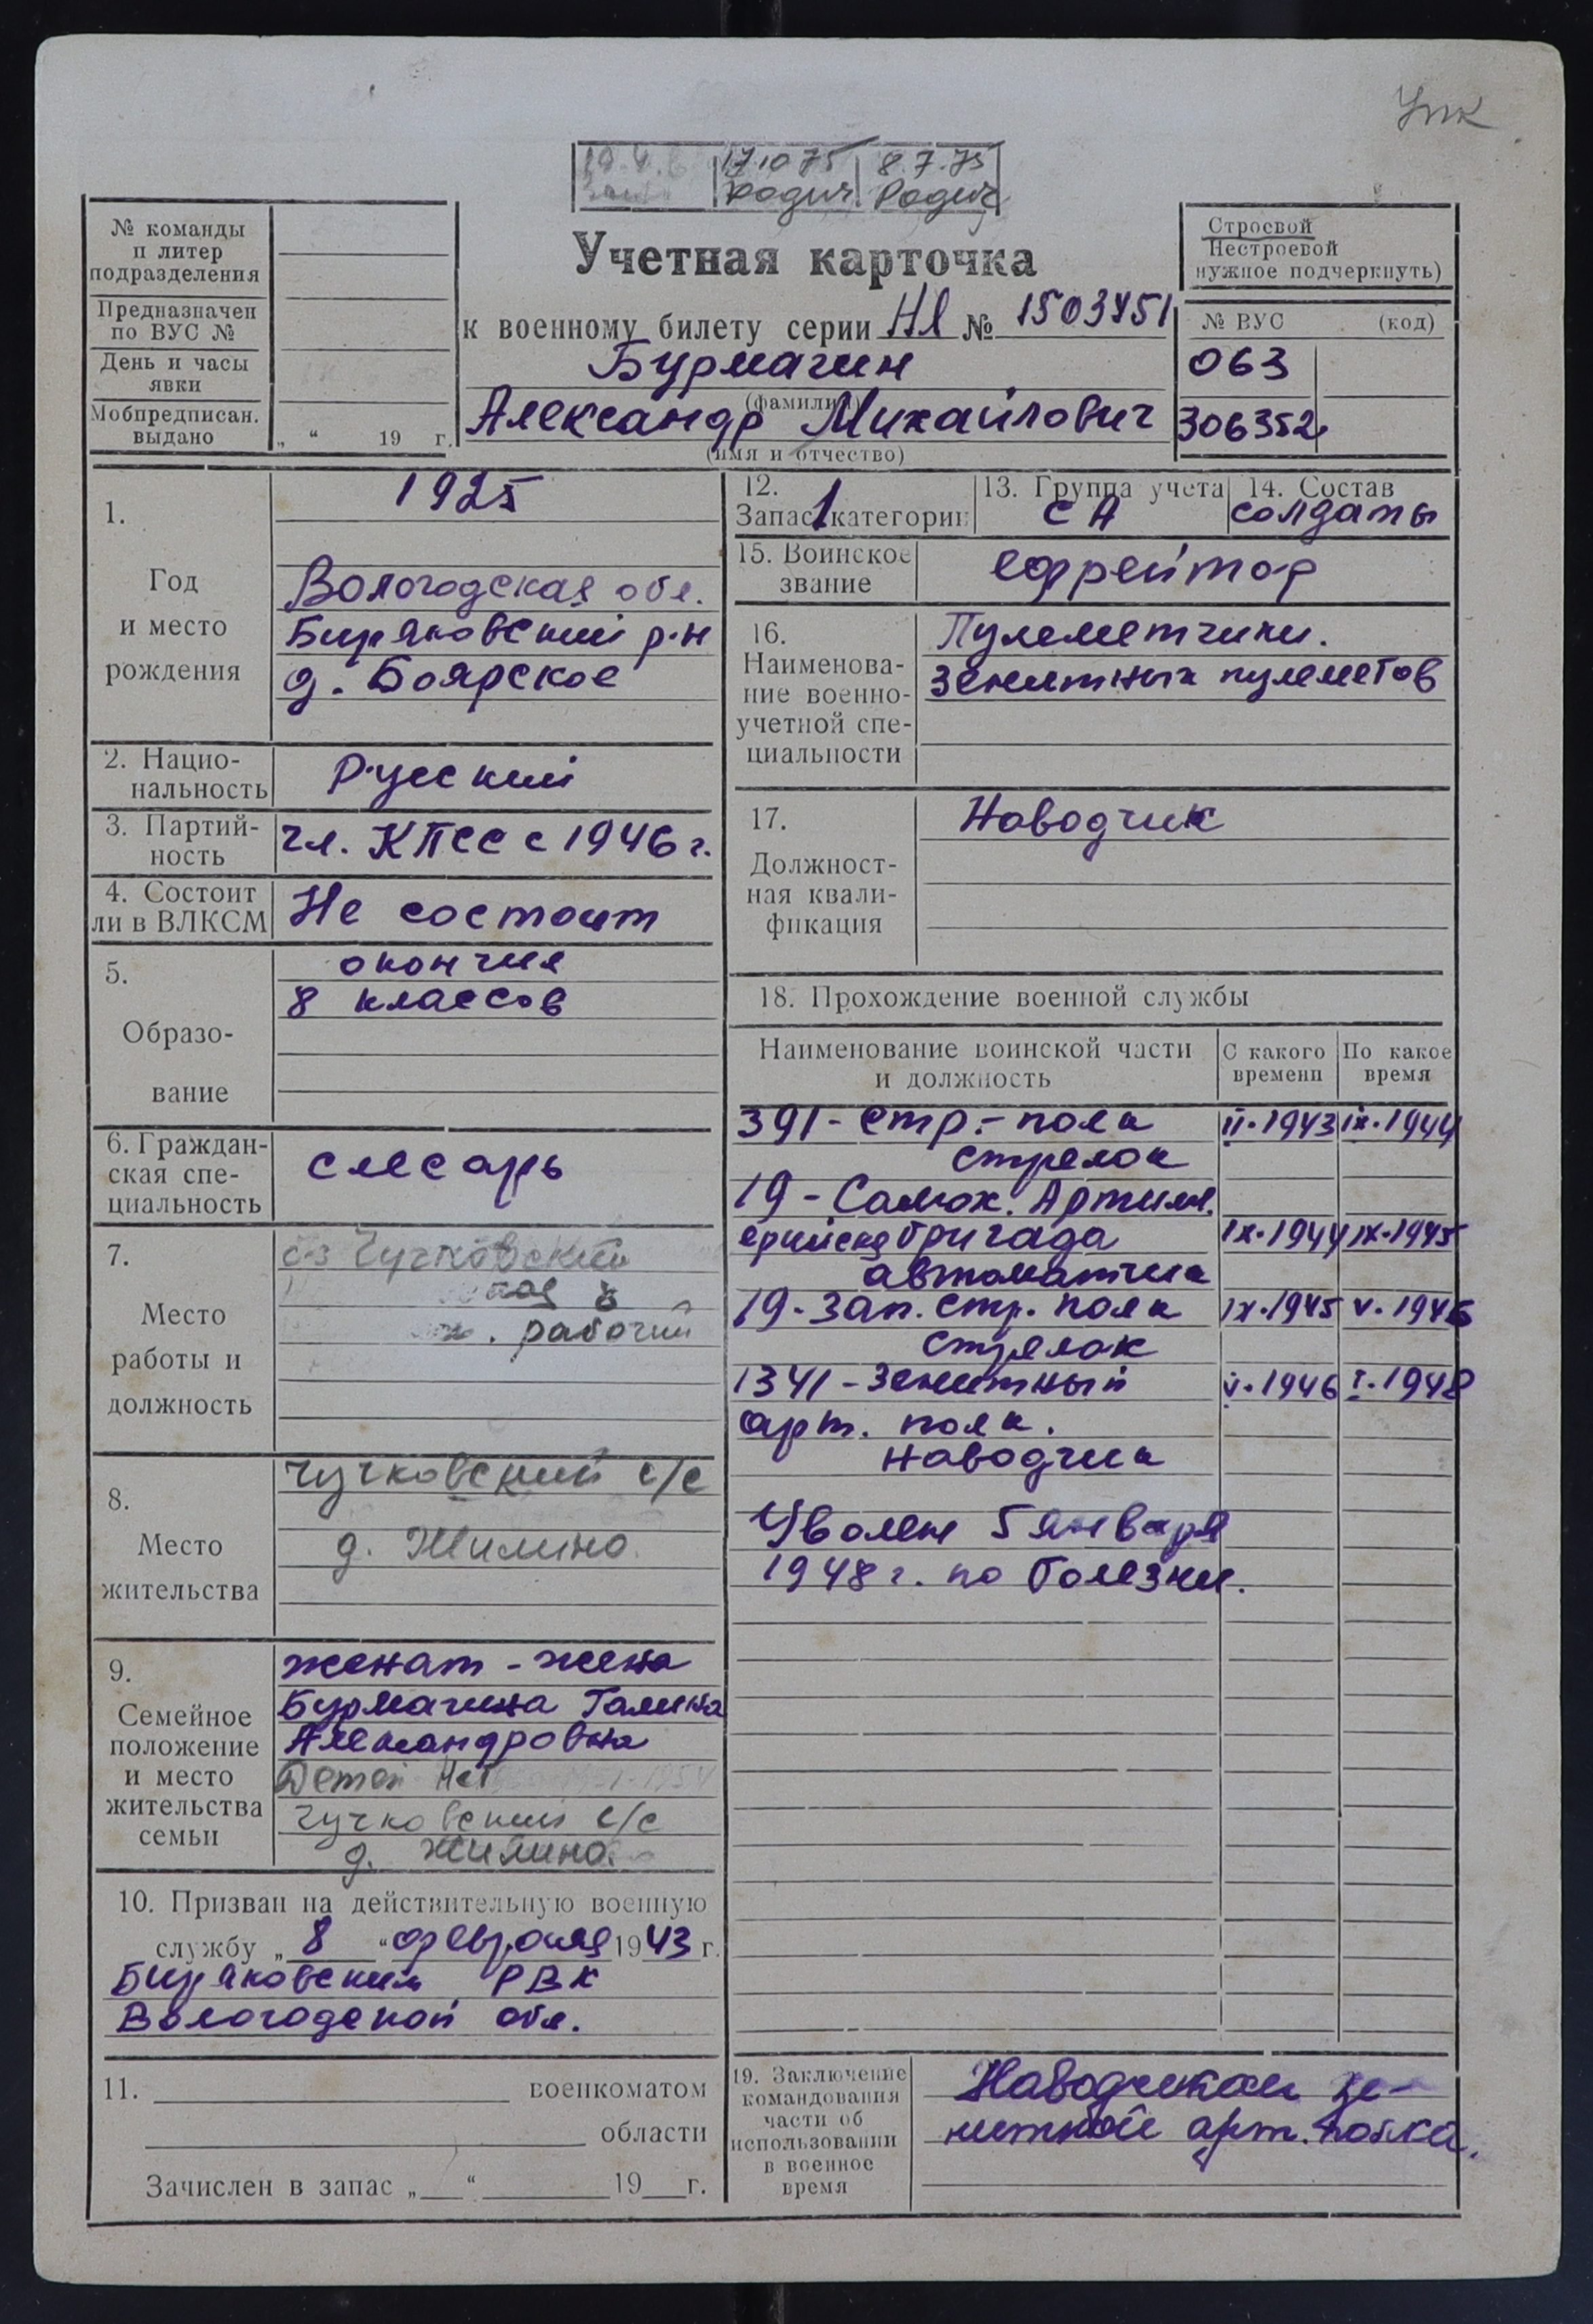 Упк
17.10 75 8.7.75
Родич Родич
№ команды
п литер
подразделения
Предназначен
по ВУС №
День и часы
явки
Мобпредписан.
выдано „ “ 19 г.
Учетная карточка
к военному билету серии НЯ № 1503451
Бурмагин
(фамилия)
Александр Михайлович
(имя и отчество)
Строевой
Нестроевой
нужное подчеркнуть)
№ ВУС (код)
063
306352
1.
Год
и место
рождения
1925
Вологодская обл.
Биряковский р-н
д. Боярское
2. Нацио-
нальность
Русский
3. Партий-
ность
чл. КПСС с 1946 г.
4. Состоит
ли в ВЛКСМ
Не состоит
5.
Образо-
вание
окончил
8 классов
6. Граждан-
ская спе-
циальность
слесарь
7.
Место
работы и
должность
Чучковский
рабочий
8.
Место
жительства
Чучковский с/с
д. Жилино
9.
Семейное
положение
и место
жительства
семьи
женат - жена
Бурмагина Галина
Александровна
Детей нет
Чучковский с/с
д. Жилино.
10. Призван на действительную военную
службу „ 8 “ февраля 1943 г.
Биряковским РВК
Вологодской обл.
11. военкоматом
области
Зачислен в запас „ “ 19 г.
12.
Запас 1 категории
13. Группа учета
СА
14. Состав
солдаты
15. Воинское
звание
ефрейтор
16.
Наименова-
ние военно-
учетной спе-
циальности
Пулеметчики.
зенитных пулеметов
17.
Должност-
ная квали-
фикация
Наводчик
18. Прохождение военной службы
Наименование воинской части
и должность
С какого
времени
По какое
время
391 - стр. - полк II.1943 IX.1944
стрелок
19 - Самох. Артилл.
ерийская бригада IX.1944 IX.1945
автоматчик
19 - зап. стр. полк IX.1945 V.1946
стрелок
1341 - зенитный V.1946 I.1948
арт. полк.
наводчик
Уволен 5 января
1948 г. по болезни.
19. Заключение
командования
части об
использовании
в военное
время
Наводчиком зе-
нитной арт. полка.